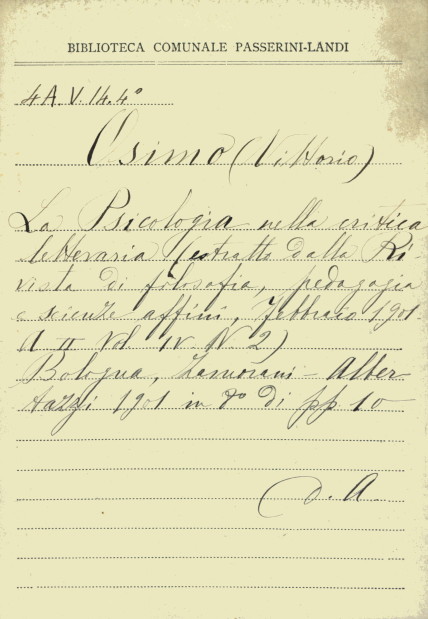 BIBLIOTECA COMUNALE PASSERINI-LANDI
4 A. V. 14. 4°
Osimo (Vittorio)
La Psicologia nella critica
letteraria (estratto dalla Ri-
vista di filosofia, pedagogia
e scienze affini, febbraio 1901.
A II Vol. IV N 2)
Bologna, Zamorani - Alber
tazzi 1901 in 8° di pp 10
D. A.